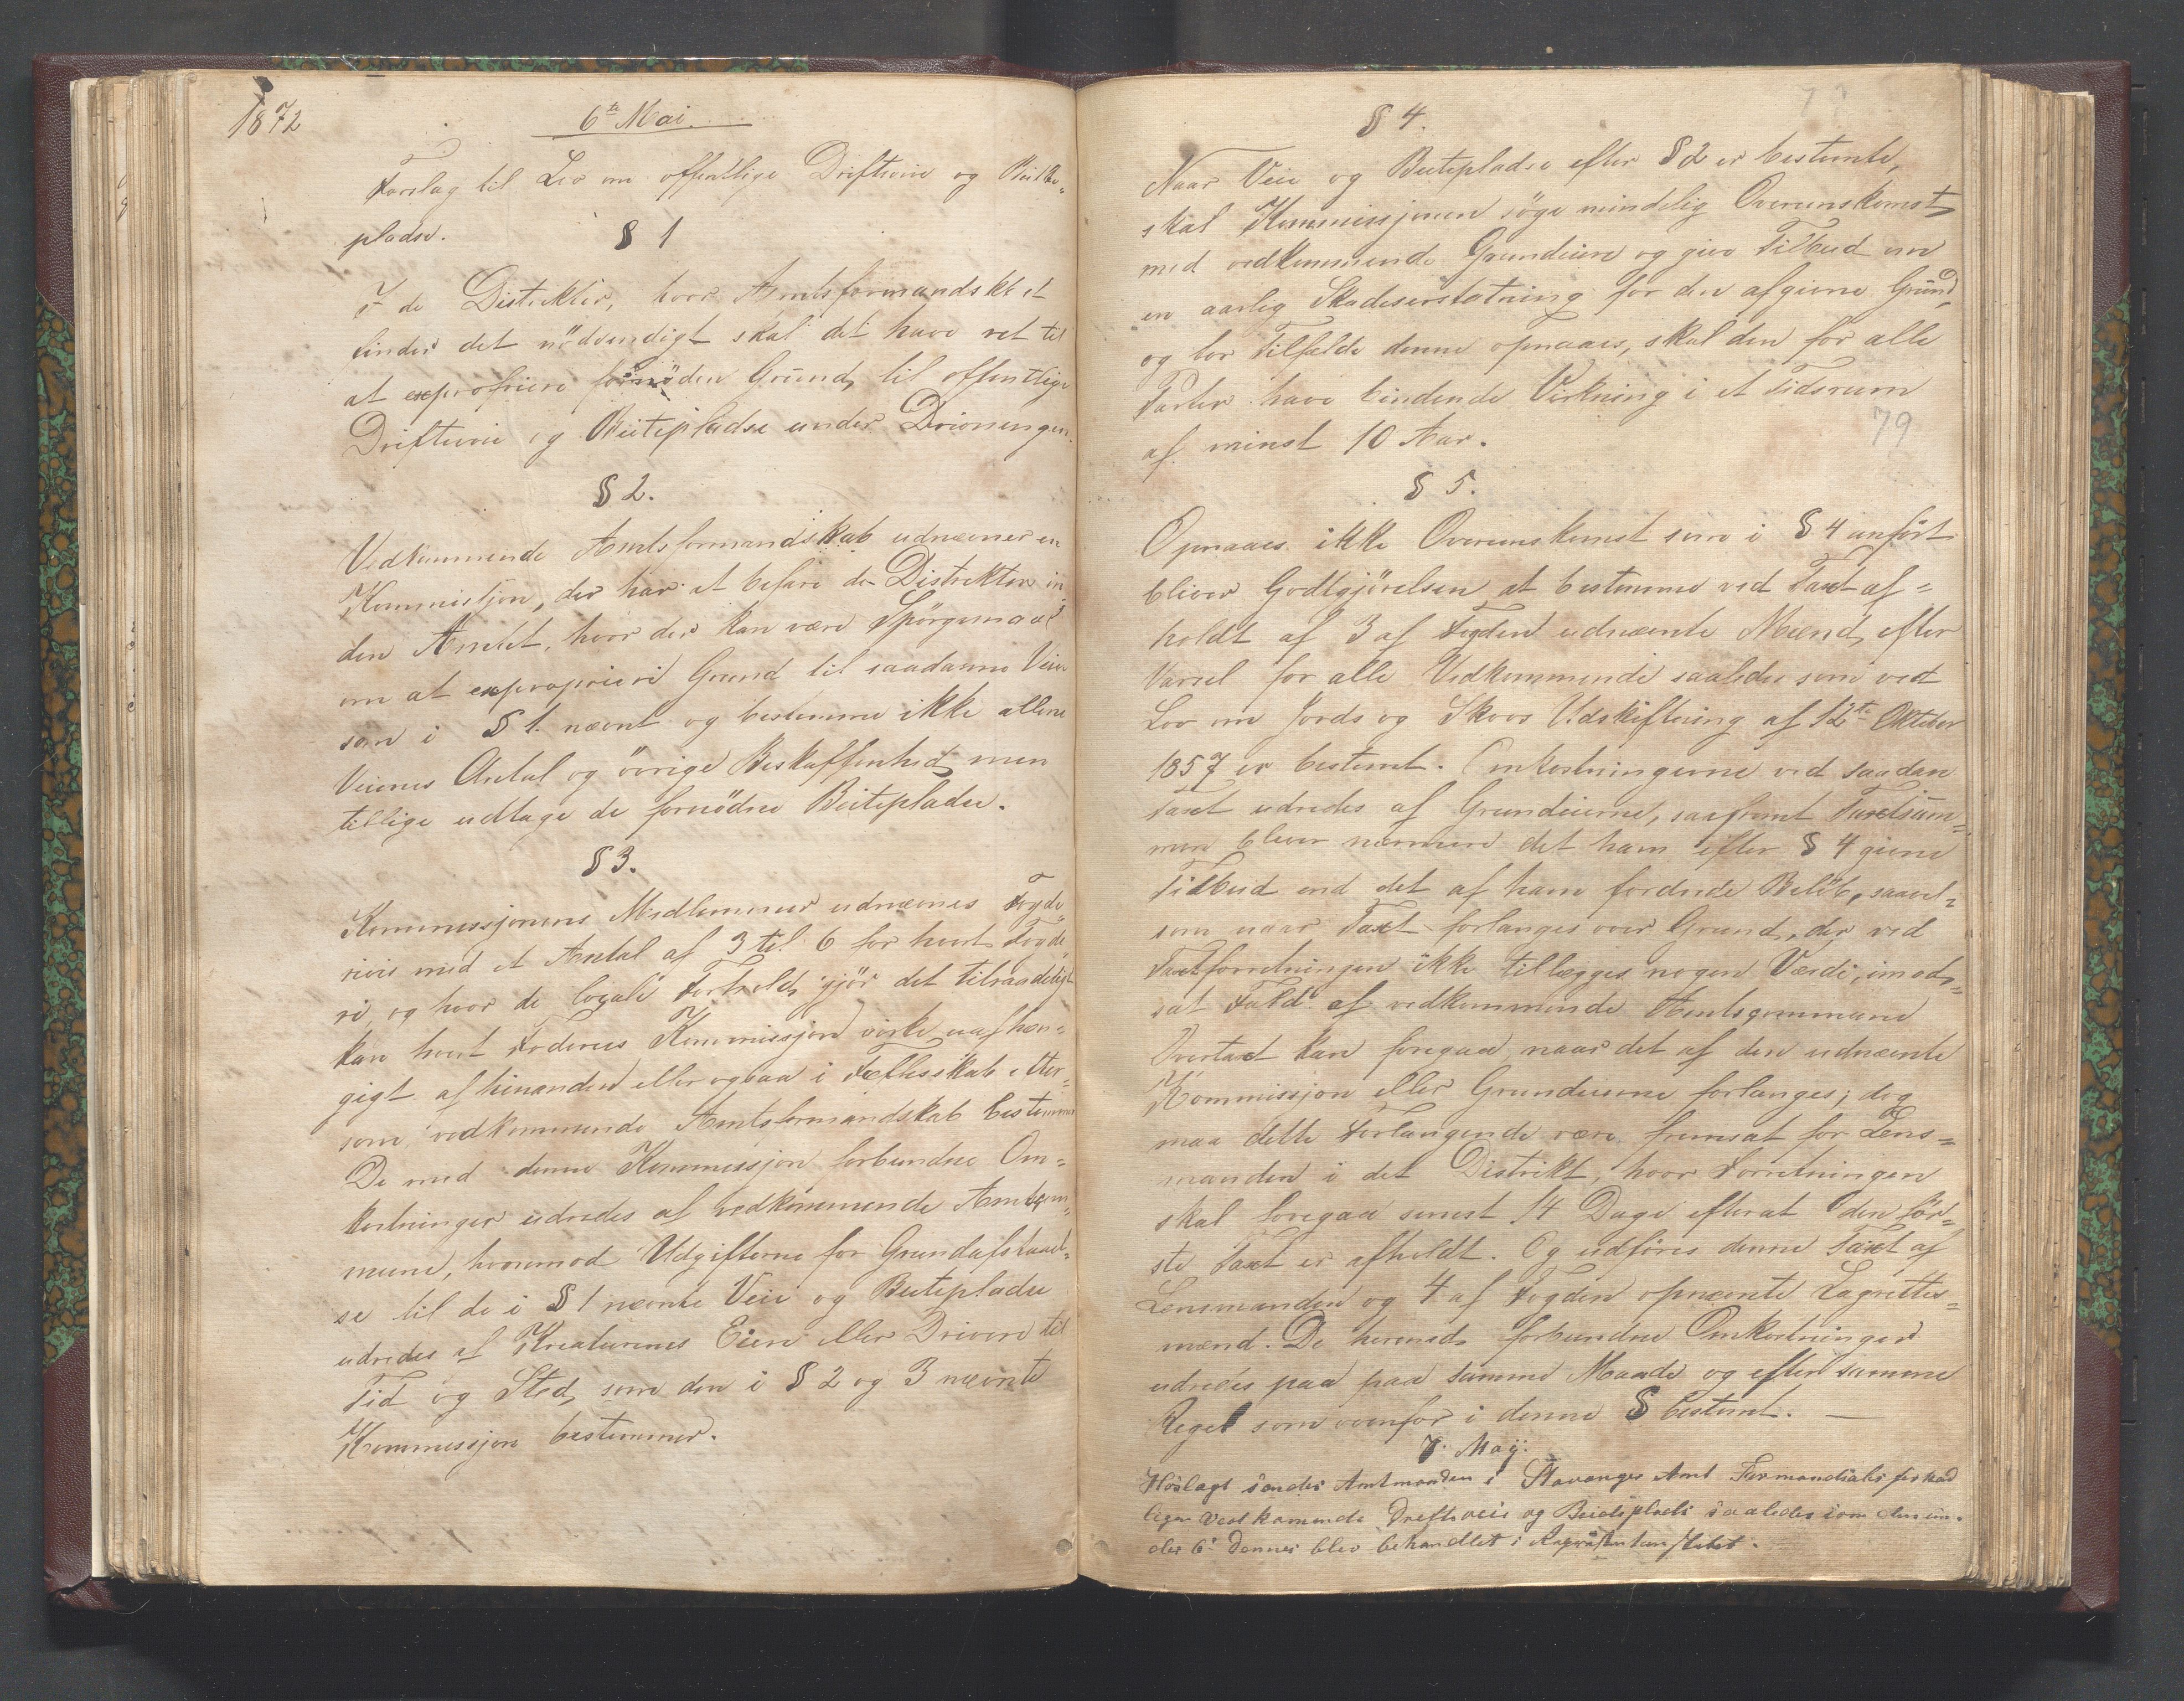 1872
6te Mai.
Forslag til Lov om offentlige Driftveie og Beite-
pladse.
§ 1
I de Distrikter, hvor Amtsformandskabet
finder det nödvendigt skal det have ret til
at expropriere fornöden Grund til offentlige
Driftveie og Beitepladse under Drivningen.
§ 2.
Vedkommende Amtsformandskab udnævner en
Kommissjon, der har at befare de Distrikter in-
den Amtet, hvor der kan være Spörgsmaal
om at expropriere Grund til saadanne Veie
som i § 1. nævnt og bestemme ikke allene
Veienes Antal og övrige Beskaffenhed men
tillige udtage de fornödne Beitepladse.
§ 3.
Kommissjonens Medlemmer udnævnes Fogde-
rivis med et Antal af 3 til 6 for hvert Fogde-
ri, og hvor de locale Forhold gjör det tilraadeligt
kan hvert Foderies Kommissjon virke uafhæn-
gigt af hinanden eller ogsaa i Fællesskab efter-
som vedkommende Amtsformandskab bestemmer
De med denne Kommissjon forbundne Om-
kostninger udredes af vedkommende Amtscom-
mune, hvorimod Udgifterne for Grundafstaael-
se til de i § 1 nævnte Veie og Beitepladse
udredes af Kreaturenes Eiere eller Drivere til
Tid og Sted, som den i § 2 og 3 nævnte
Kommissjon bestemmer.
§ 4.
Naar Veie og Beitepladse efter § 2 er bestemte,
skal Kommissjonen söge mindelig Overenskomst
med vedkommende Grundeiere og give Tilbud om
en aarlig Skadeserstatning for den afgivne Grund,
og for Tilfælde denne opnaaes, skal den for alle
Parter have bindende Virkning i et Tidsrum
79
af minst 10 Aar.
§ 5.
Opnaaes ikke Overenskomst som i § 4 anfört
bliver Godtgjörelsen at bestemme ved Taxt af-
holdt af 3 af Fogden udnævnte Mænd, efter
Varsel for alle Vedkommende saaledes som ved
Lov om Jords og Skovs Udskiftning af 12te Oktober
1857 er bestemt. Omkostningerne ved saadan
Taxt udredes af Grundeierne, saafremt Taxtsum-
men bliver nærmere det ham efter § 4 givne
Tilbud end det af ham fordrede Belöb, saavel-
som naar Taxt forlanges over Grund, der ved
Taxtforretningen ikke tillægges nogen Værdi, imod-
sat Fald af vedkommende Amtscommune
Overtaxt kan foregaa, naar det af den udnævnte
Kommissjon eller Grundeierne forlanges; dog
maa dette Forlangende være fremsat for Lens-
manden i det Distrikt, hvor Forretningen
skal foregaa senest 14 Dage efterat den för-
ste Taxt er afholdt. Og udföres denne Taxt af
Lensmanden og 4 af Fogden opnævnte Lagrettes-
mænd. De hermed forbundne Omkostninger
udredes paa paa samme Maade og efter samme
Regel som ovenfor i denne § bestemt. —
7. Maij.
Hoslagt sendes Amtmanden i Stavanger Amt Formandskabsforhand
linger vedkommende Driftveie og Beitepladse saaledes som den un-
der 6. Dennes blev behandlet i Repræsentantskabet.